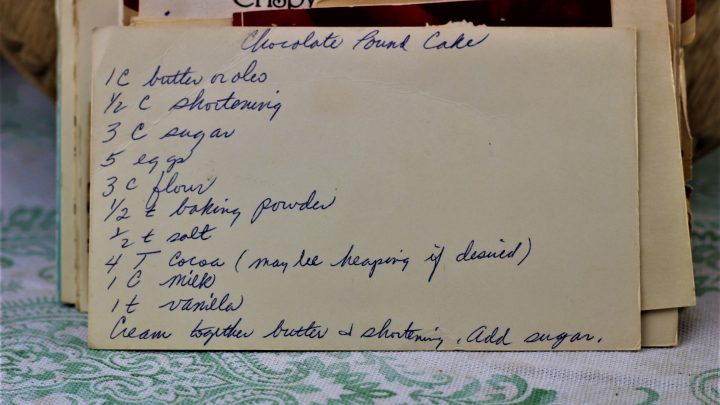 Crispy
Chocolate Pound Cake
1 C butter or oleo
1/2 C shortening
3 C sugar
5 eggs
3 C flour
1/2 t baking powder
1/2 t salt
4 T cocoa (may be heaping if desired)
1 C milk
1 t vanilla
Cream together butter & shortening. Add sugar.